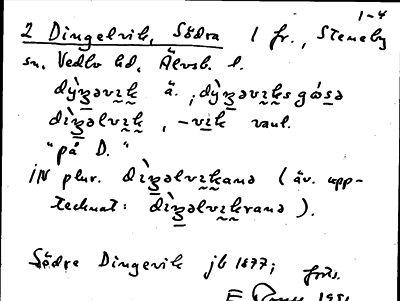 1-4
2 Dingelvik, Södra 1 fr., Steneby
sn, Vedbo hd, Älvsb. l.
dỳʒəvɪk ä. , dỳʒəvɪksgɷ́sə
dɪ̀ʒəlvɪk , -vɪk vanl.
"på D."
IN plur. dɪ̀ʒəlvɪkana (äv. upp-
tecknat: dɪ̀ʒəlvɪkrana ).
Södre Dingevik jb 1877; forts.